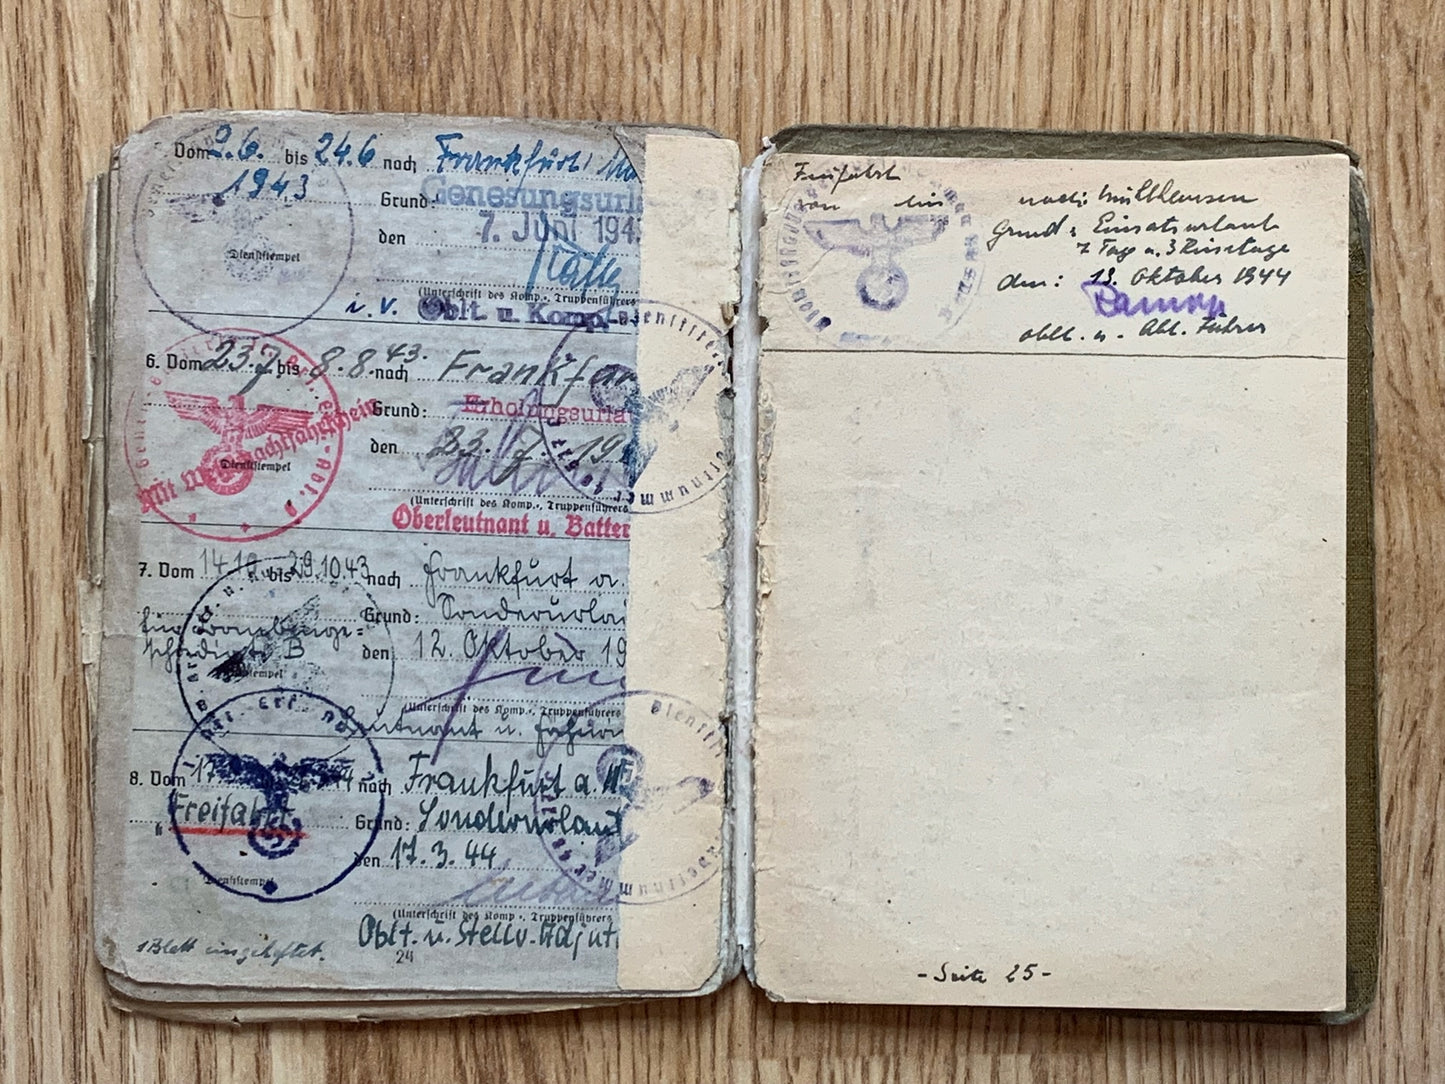 Vom 9.6. bis 24.6 nach Frankfurt
1943
Grund: Genesungsurl
den 7. Juni 194
Dienststempel
(Unterschrift des Komp., Truppenführers
i.V. Oblt. u. Komp.-
6. Vom 23.7 bis 8.8.43. nach Frankfur
Grund: Erholungsurla
Mit Wehrmachtfahrschein
den 23. 7. 19
Dienststempel
(Unterschrift des Komp., Truppenführers
Oberleutnant u. Batter
7. Vom 14.10 bis 29.10.43 nach Frankfurt a.
Grund: Sonderurlau
für Bombenge=
schädigte B den 12. Oktober 19
stempel
(Unterschrift des Komp., Truppenführers
Leutnant u.
8. Vom 17 44 nach Frankfurt a. M
Freifahrt. Grund: Sonderurlaub
den 17. 3. 44
Dienststempel
(Unterschrift des Komp., Truppenführers
Oblt. u. Stellv. Adjut
1 Blatt eingeheftet.
24
Freifahrt
von nach: Mülhausen
Grund: Einsatzurlaub
7 Tag u. 3 Reisetage
den: 13. Oktober 1944
Oblt. u. Abt. Führer
- Seite 25 -